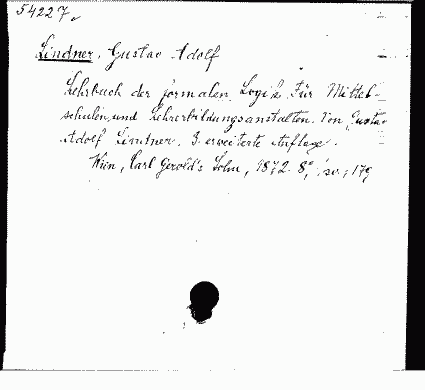 54227.
Lindner, Gustav Adolf
Lehrbuch der formalen Logik. Für Mittel-
schulen und Lehrerbildungsanstalten. Von Gustav
Adolf Lindner. 3. erweiterte Auflage.
Wien, Carl Gerold's Sohn, 1872. 8°, 179